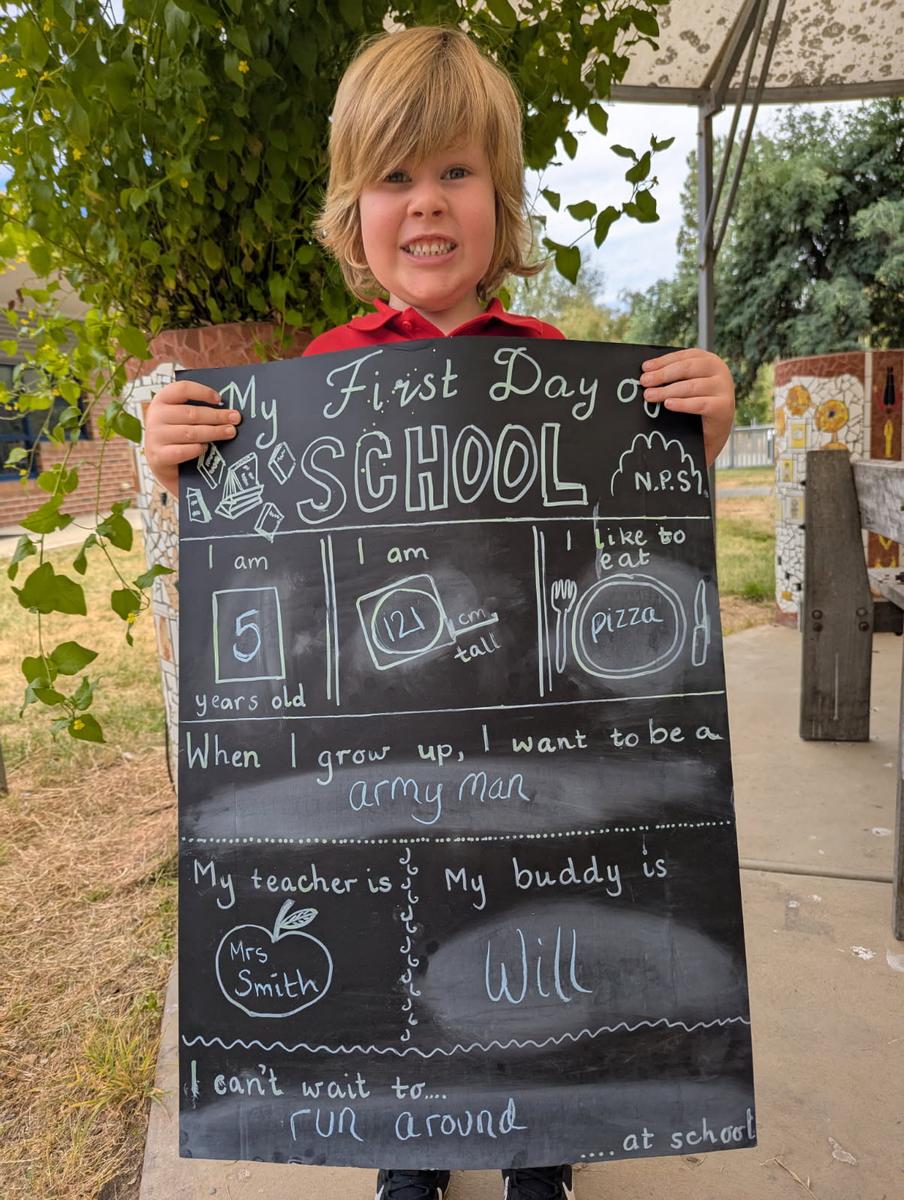 My First Day of
SCHOOL
N.P.S
I am
5
years old
I am
121 cm
tall
I like to
eat
pizza
When I grow up, I want to be a
army man
My teacher is
Mrs
Smith
My buddy is
Will
I can't wait to....
run around
....at school